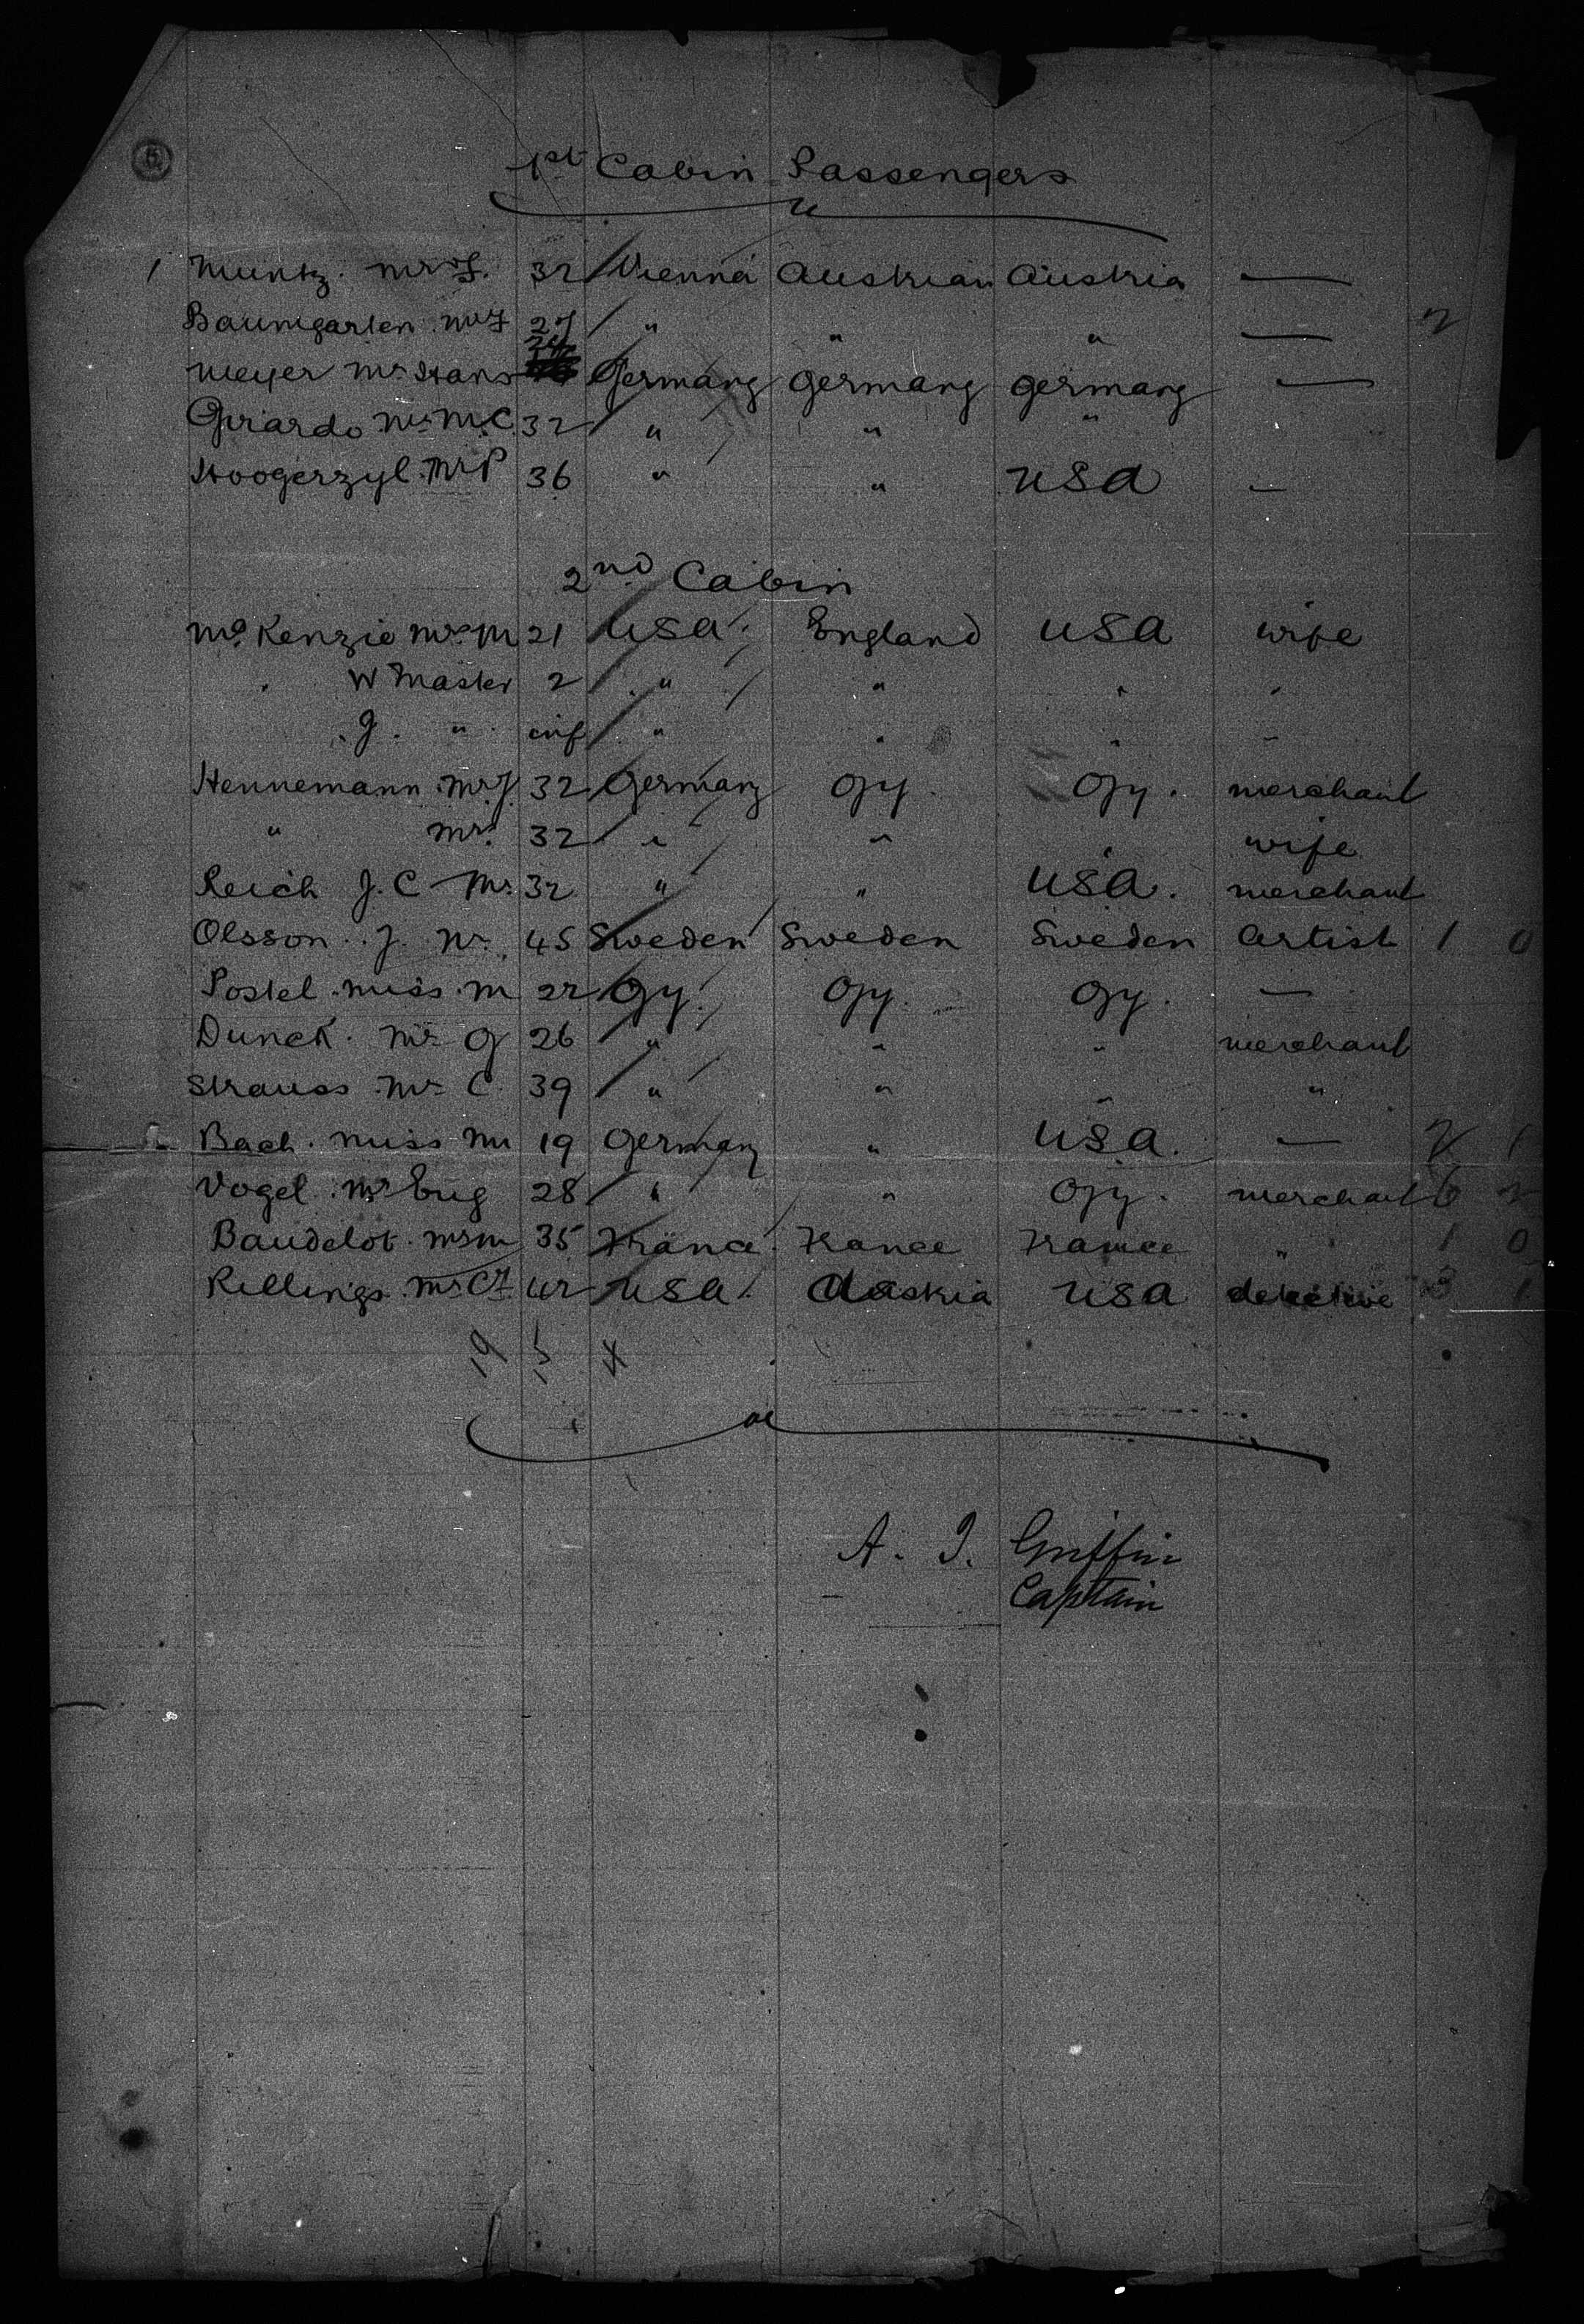 1st Cabin Passengers
1 Muntz. Mr J. 32 Vienna Austrian Austria —
Baumgarten. Mr J 27 " " " — 2
Meyer Mr Hans 24 Germany Germany Germany —
Girardo Mr M.C. 32 " " "
Hoogerzyl. Mr P 36 " " USA —
2nd Cabin
McKenzie Mrs M 21 USA. England USA wife
" W Master 2 " " " "
. J. " inf " " " "
Hennemann. Mr J. 32 Germany Gy. Gy. merchant
" Mrs. 32 " " " wife
Reich J. C Mr. 32 " " USA. merchant
Olsson. J. Mr. 45 Sweden Sweden Sweden Artist 1 0
Postel. Miss. M 22 Gy. Gy. Gy. —
Dunck. Mr G 26 " " " merchant
Strauss. Mr C. 39 " " " "
Bach. Miss M 19 Germany " USA. — 2 1
Vogel. Mr Eug 28 " " Gy. merchant 6 2
Baudelot. Mr M 35 France. France France " 1 0
Rellings. Mr C.F. 42 USA. Austria USA detective 3 1
19
A. J. Griffin
Captain